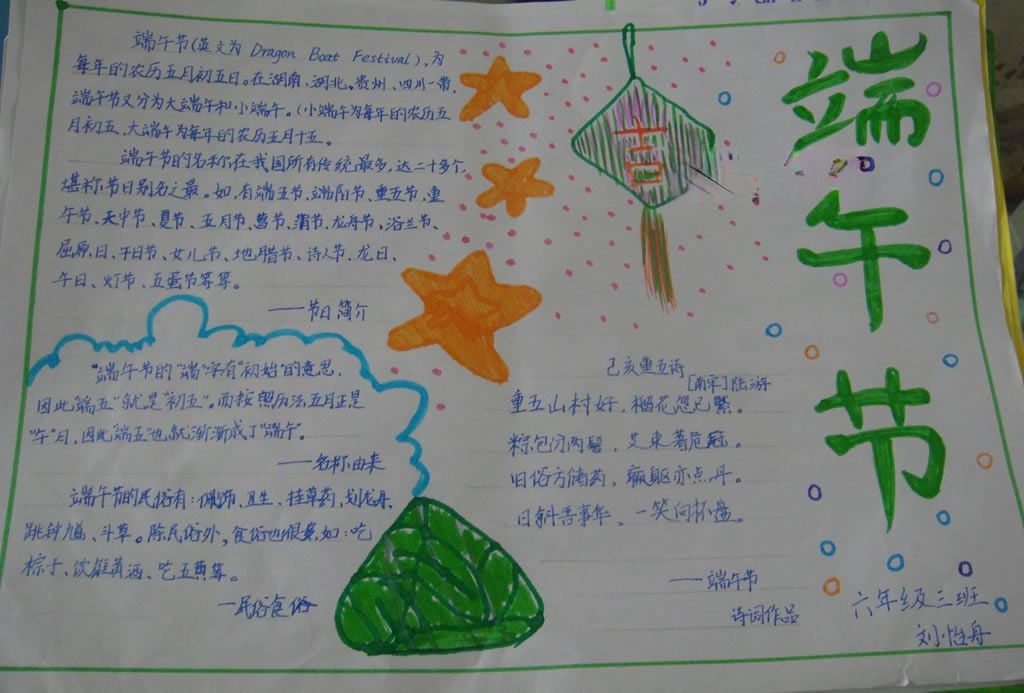 端午节(英文为 Dragon Boat Festival),为
每年的农历五月初五日。在湖南、湖北、贵州、四川一带,
端午节又分为大端午和小端午。(小端午为每年的农历五
月初五、大端午为每年的农历五月十五。
端午节的名称在我国所有传统最多,达二十多个,
堪称节日别名之最。如,有端五节、端阳节、重五节、重
午节、天中节、夏节、五月节、菖节、蒲节、龙舟节、浴兰节、
屈原日、午日节、女儿节、地腊节、诗人节、龙日、
午日、灯节、五蛋节等等。
——节日简介
"端午节的"端"字有"初始"的意思,
因此"端五"就是"初五"。而按照历法五月正是
"午"月,因此"端五"也就渐渐成了"端午"。
——名称由来
端午节的民俗有:卫生、挂草药、划龙舟、
跳钟馗、斗草。除民俗外,食俗也很多,如:吃
粽子、饮雄黄酒、吃五黄等。
—民俗食俗
喜
己亥重五诗
[南宋]陆游
重五山村好,榴花忽已繁。
粽包分两髻,艾束著危冠。
旧俗方储药,羸躯亦点丹。
日斜吾事毕、一笑向杯盘。
——端午节
诗词作品
端午节
六年级三班
刘怡舟